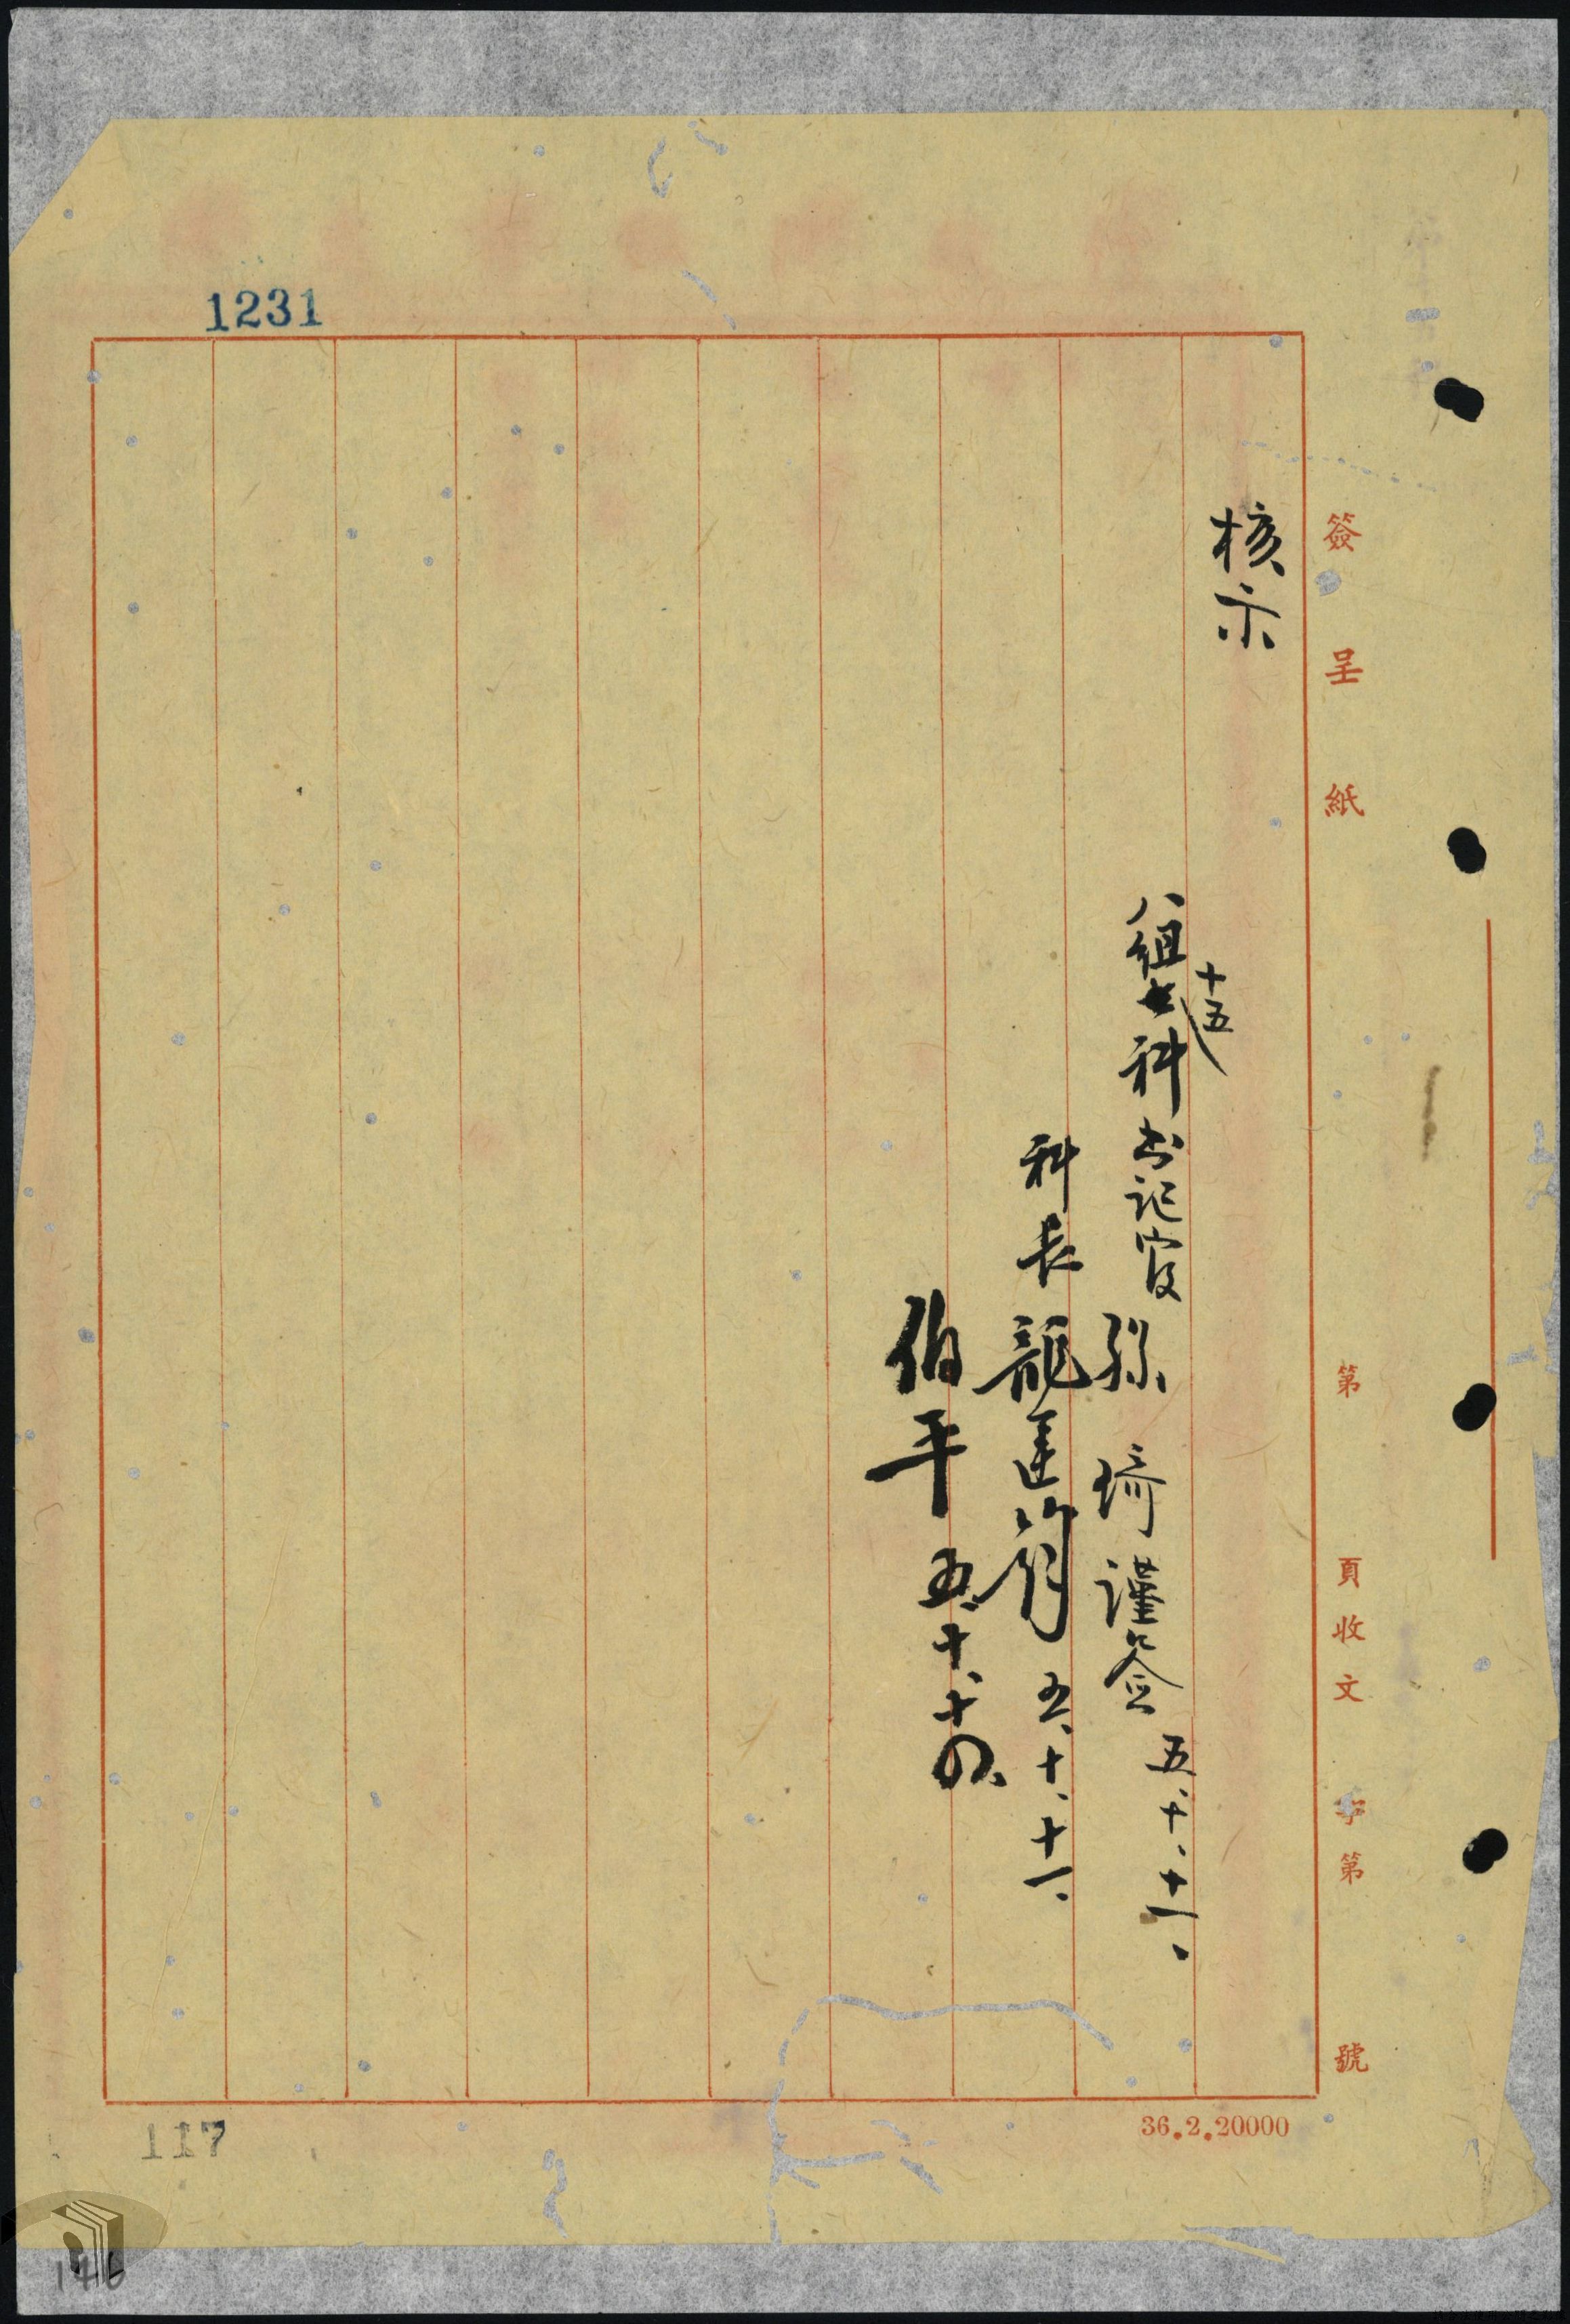 簽呈紙 第 頁收文 字第 號
核示
十五
八組科书记官 孫琦謹签 五、十、十一、
科长 龍 五、十、十一、
伯平 五、十、十四、
1231
36.2.20000
117
146